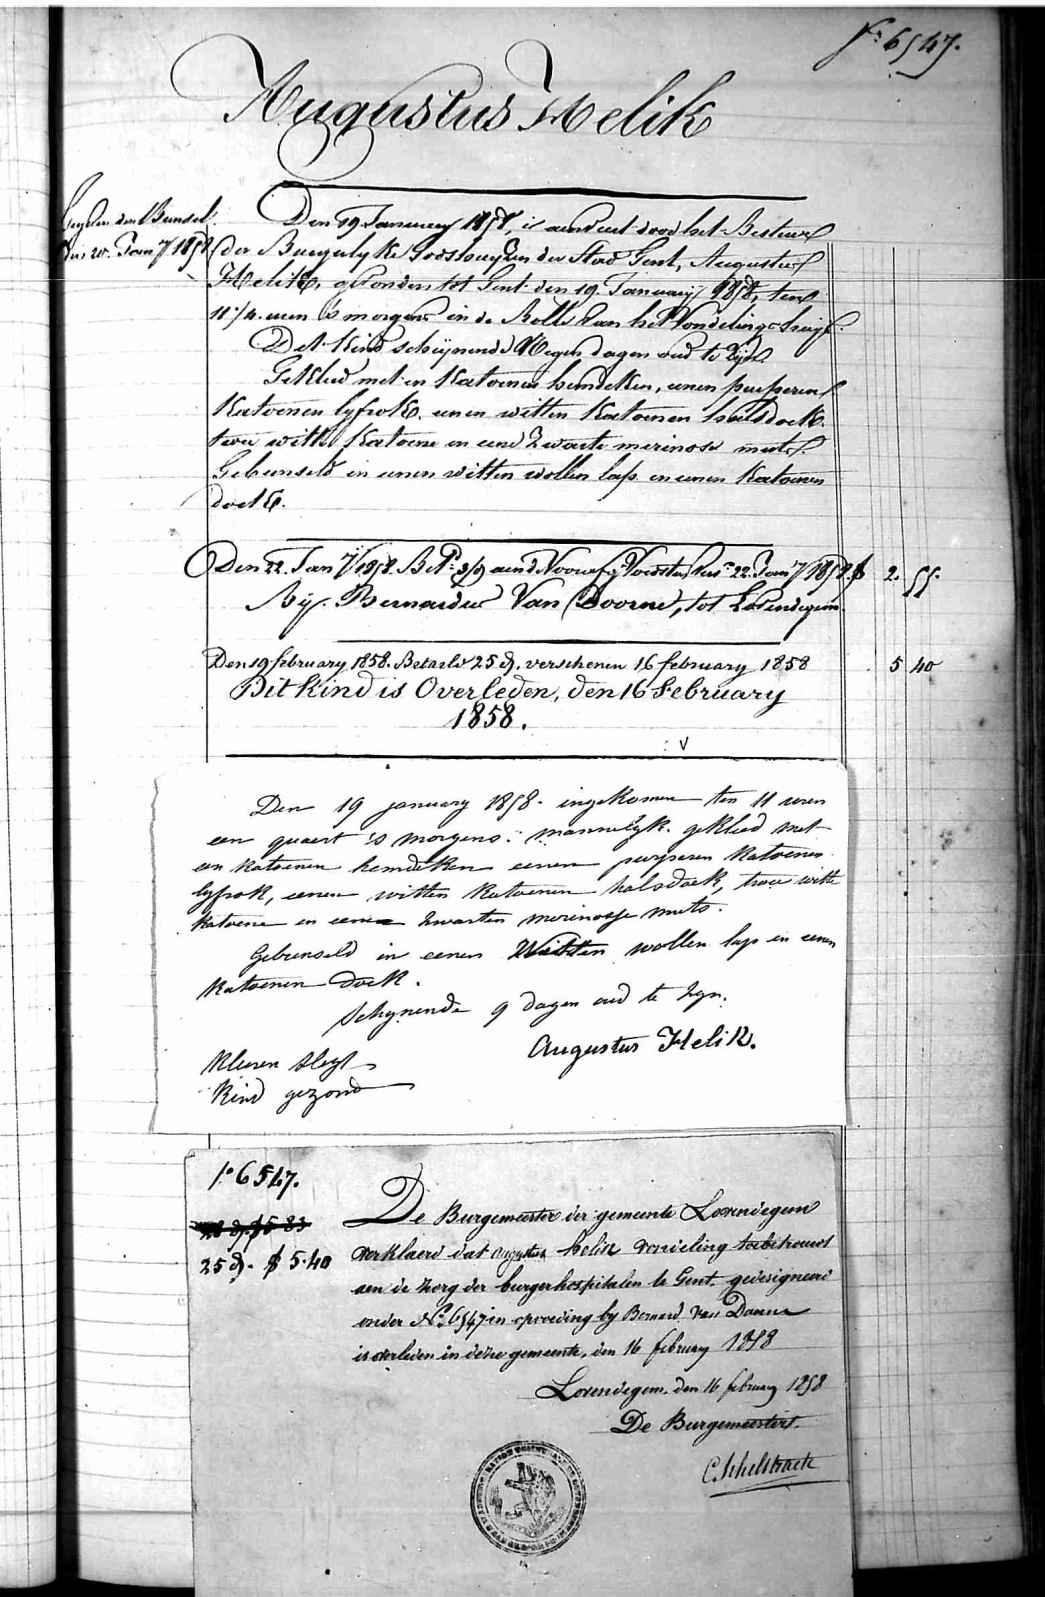 N.º 6547.
Augustus Helik
den 20 Jany 1858
Den 19 January 1858, is aenveerd door het Bestuur
der Burgerlyke Godshuyzen der Stad Gent, Augustus
Helik, gevonden tot Gent den 19. January 1858, ten
11 1/4 uren 's morgens in de Rolle van het Vondelingshuys.
Det Kind schynende Negen dagen oud te zyn
Gekleed met en Katoenen hemdeken, eenen purperen
Katoenen lyfrok, eenen witten Katoenen halsdoek.
twee witte Katoene en eene Zwarte merinose muts.
Gebunseld in eenen witten wollen lap en eenen Katoenen
doek.
Den 22. Jany 1858. Best. aen d Voedster 22. Jany 1858 f 2. 55.
By. Bernardus Van Doorne, tot Lovendegem
Den 19 february 1858. Betaeld 25 d. verschenen 16 february 1858 5 40
Dit Kind is Overleden, den 16 February
1858.
Den 19 january 1858. ingekomen ten 11 uren
een quaert 's morgens. mannelyk. gekleed met
en katoenen hemdeken eenen purperen katoenen
lyfrok, eenen witten katoenen halsdoek, twee witte
katoene en eene zwarten merinosse muts.
Gebunseld in eenen Witten wollen lap en eenen
katoenen doek.
schynende 9 dagen oud te zyn.
Augustus Helik.
Kleeren slegt
Kind gezond
N.º 6547.
25 d. f 5.40
De Burgemeester der gemeente Lovendegem
verklaerd dat Augustus helik vondeling toebetrouwt
aen de zorg der burgerhospitalen te Gent, gedesigneerd
onder Nº 6547 in opvoeding by Bernard Van Doorne
is overleden in deze gemeente, den 16 february 1858
Lovendegem, den 16 february 1858
De Burgemeester.
C. Schelstraete